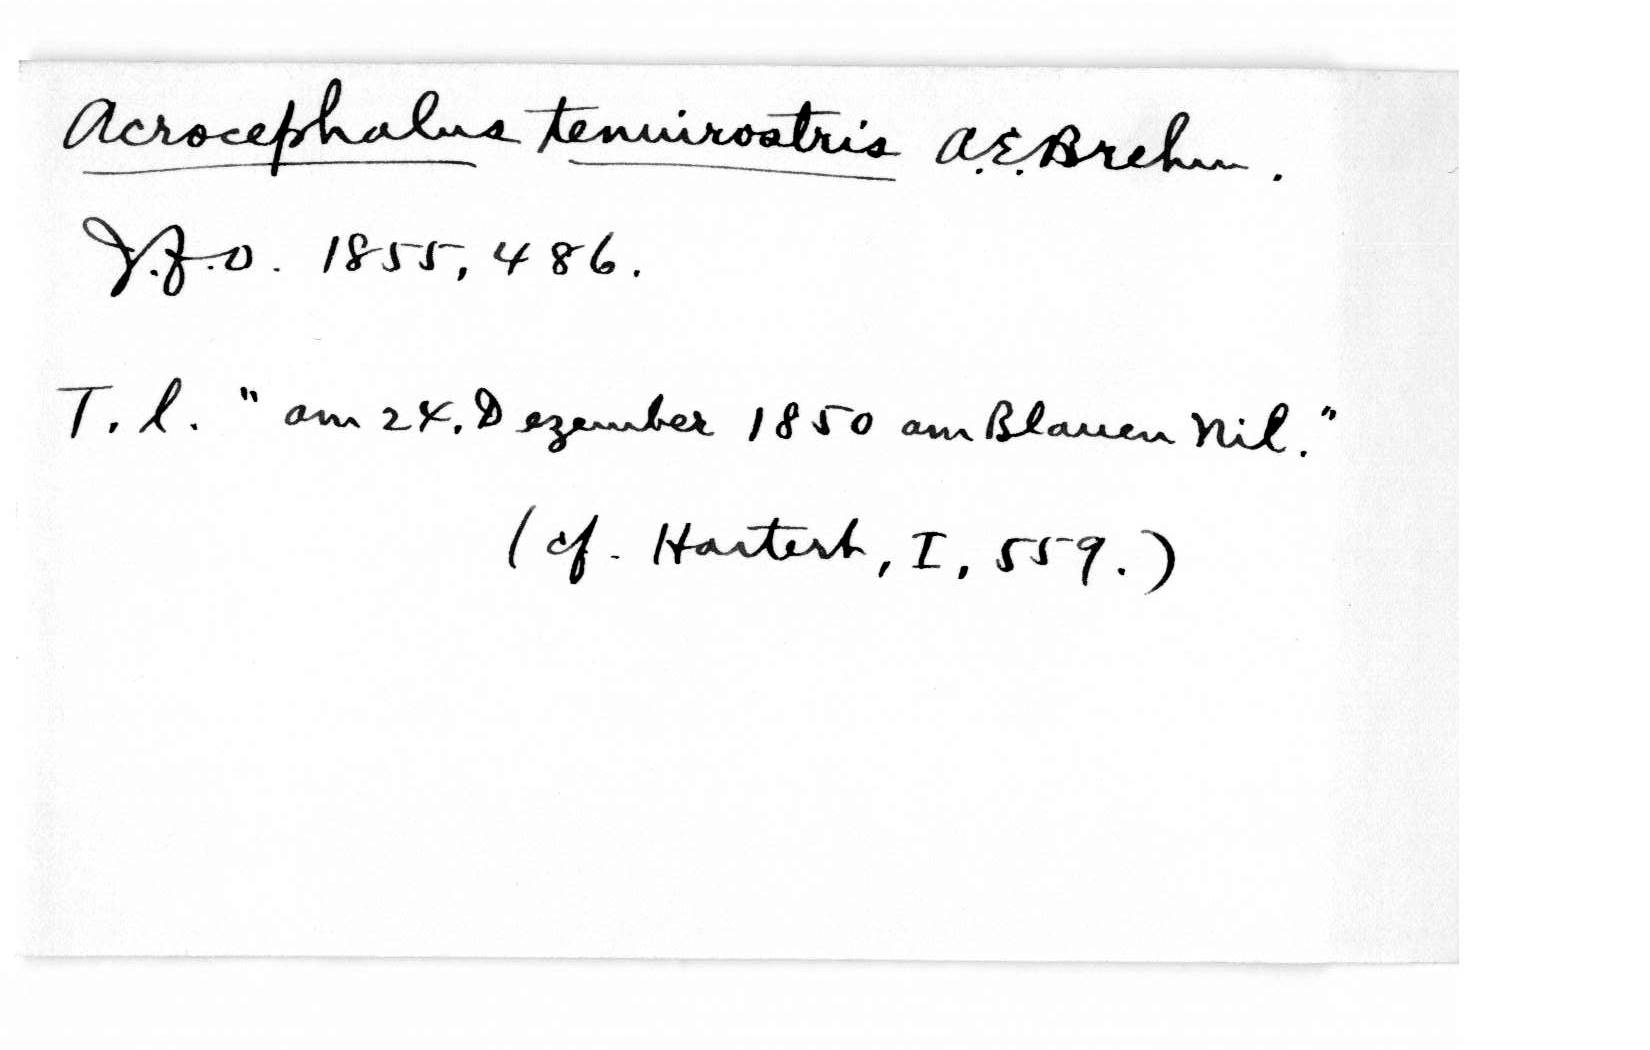 Acrocephalus tenuirostris A.E. Brehm.
J.f.O. 1855, 486.
T. l. "am 24. Dezember 1850 am Blauen Nil."
(cf. Hartert, I, 559.)